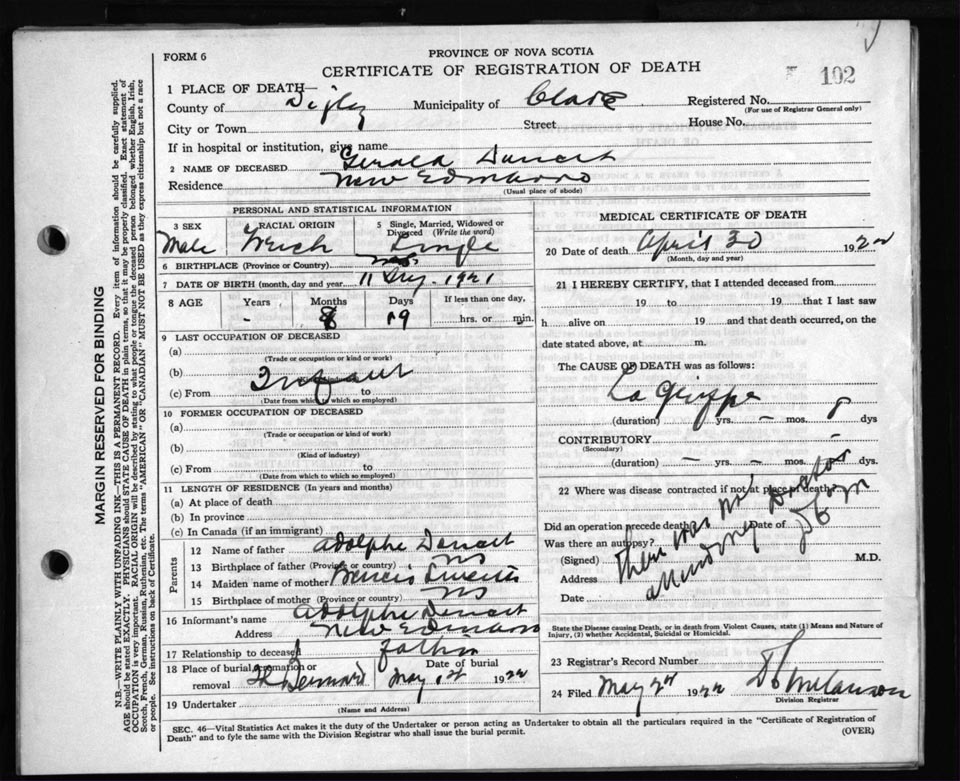 FORM 6
PROVINCE OF NOVA SCOTIA
CERTIFICATE OF REGISTRATION OF DEATH
102
1 PLACE OF DEATH—
County of Digby Municipality of Clare Registered No.
(For use of Registrar General only)
City or Town Street House No.
If in hospital or institution, give name
2 NAME OF DECEASED Gerald
Residence New Edinburg
(Usual place of abode)
PERSONAL AND STATISTICAL INFORMATION
3 SEX Male
RACIAL ORIGIN French
5 Single, Married, Widowed or Divorced (Write the word) Single
6 BIRTHPLACE (Province or Country) NS
7 DATE OF BIRTH (month, day and year) 11 1921
8 AGE Years - Months 8 Days 19 If less than one day, hrs. or min.
9 LAST OCCUPATION OF DECEASED
(a)
(Trade or occupation or kind or work)
(b) Infant
(c) From to
(Date from which to which so employed)
10 FORMER OCCUPATION OF DECEASED
(a)
(Trade or occupation or kind of work)
(b)
(Kind of industry)
(c) From to
(Date from which to which so employed)
11 LENGTH OF RESIDENCE (In years and months)
(a) At place of death
(b) In province
(c) In Canada (if an immigrant)
Parents
12 Name of father Adolphe
13 Birthplace of father (Province or country) NS
14 Maiden name of mother
15 Birthplace of mother (Province or country) NS
16 Informant's name Adolphe
Address New Edinburg
17 Relationship to deceased father
18 Place of burial, cremation or removal St Bernard Date of burial May 1st 1922
19 Undertaker
(Name and Address)
MEDICAL CERTIFICATE OF DEATH
20 Date of death April 30 1922
(Month, day and year)
21 I HEREBY CERTIFY, that I attended deceased from
19 to 19 that I last saw
h alive on 19 and that death occurred, on the
date stated above, at m.
The CAUSE OF DEATH was as follows:
La Grippe
(duration) — yrs. — mos. 8 dys
CONTRIBUTORY —
(Secondary)
(duration) — yrs. — mos. — dys.
22 Where was disease contracted if not at place of death
Did an operation precede death? Date of
Was there an autopsy?
(Signed) M.D.
Address
Date
There was no Doctor
attending
State the Disease causing Death, or in death from Violent Causes, state (1) Means and Nature of Injury, (2) whether Accidental, Suicidal or Homicidal.
23 Registrar's Record Number
24 Filed May 2nd 1922 Melanson
Division Registrar
SEC. 46—Vital Statistics Act makes it the duty of the Undertaker or person acting as Undertaker to obtain all the particulars required in the "Certificate of Registration of
Death" and to fyle the same with the Division Registrar who shall issue the burial permit. (OVER)
MARGIN RESERVED FOR BINDING
N.B.—WRITE PLAINLY WITH UNFADING INK—THIS IS A PERMANENT RECORD. Every item of information should be carefully supplied.
AGE should be stated EXACTLY. PHYSICIANS should STATE CAUSE OF DEATH in plain terms, so that it may be properly classified. Exact statement of
OCCUPATION is very important. RACIAL ORIGIN will be described by stating to what people or tongue the deceased person belonged whether English, Irish,
Scotch, French, German, Russian, Ruthenian, etc. The terms "AMERICAN" or "CANADIAN" MUST NOT BE USED as they express citizenship but not a race
or people. See instructions on back of Certificate.